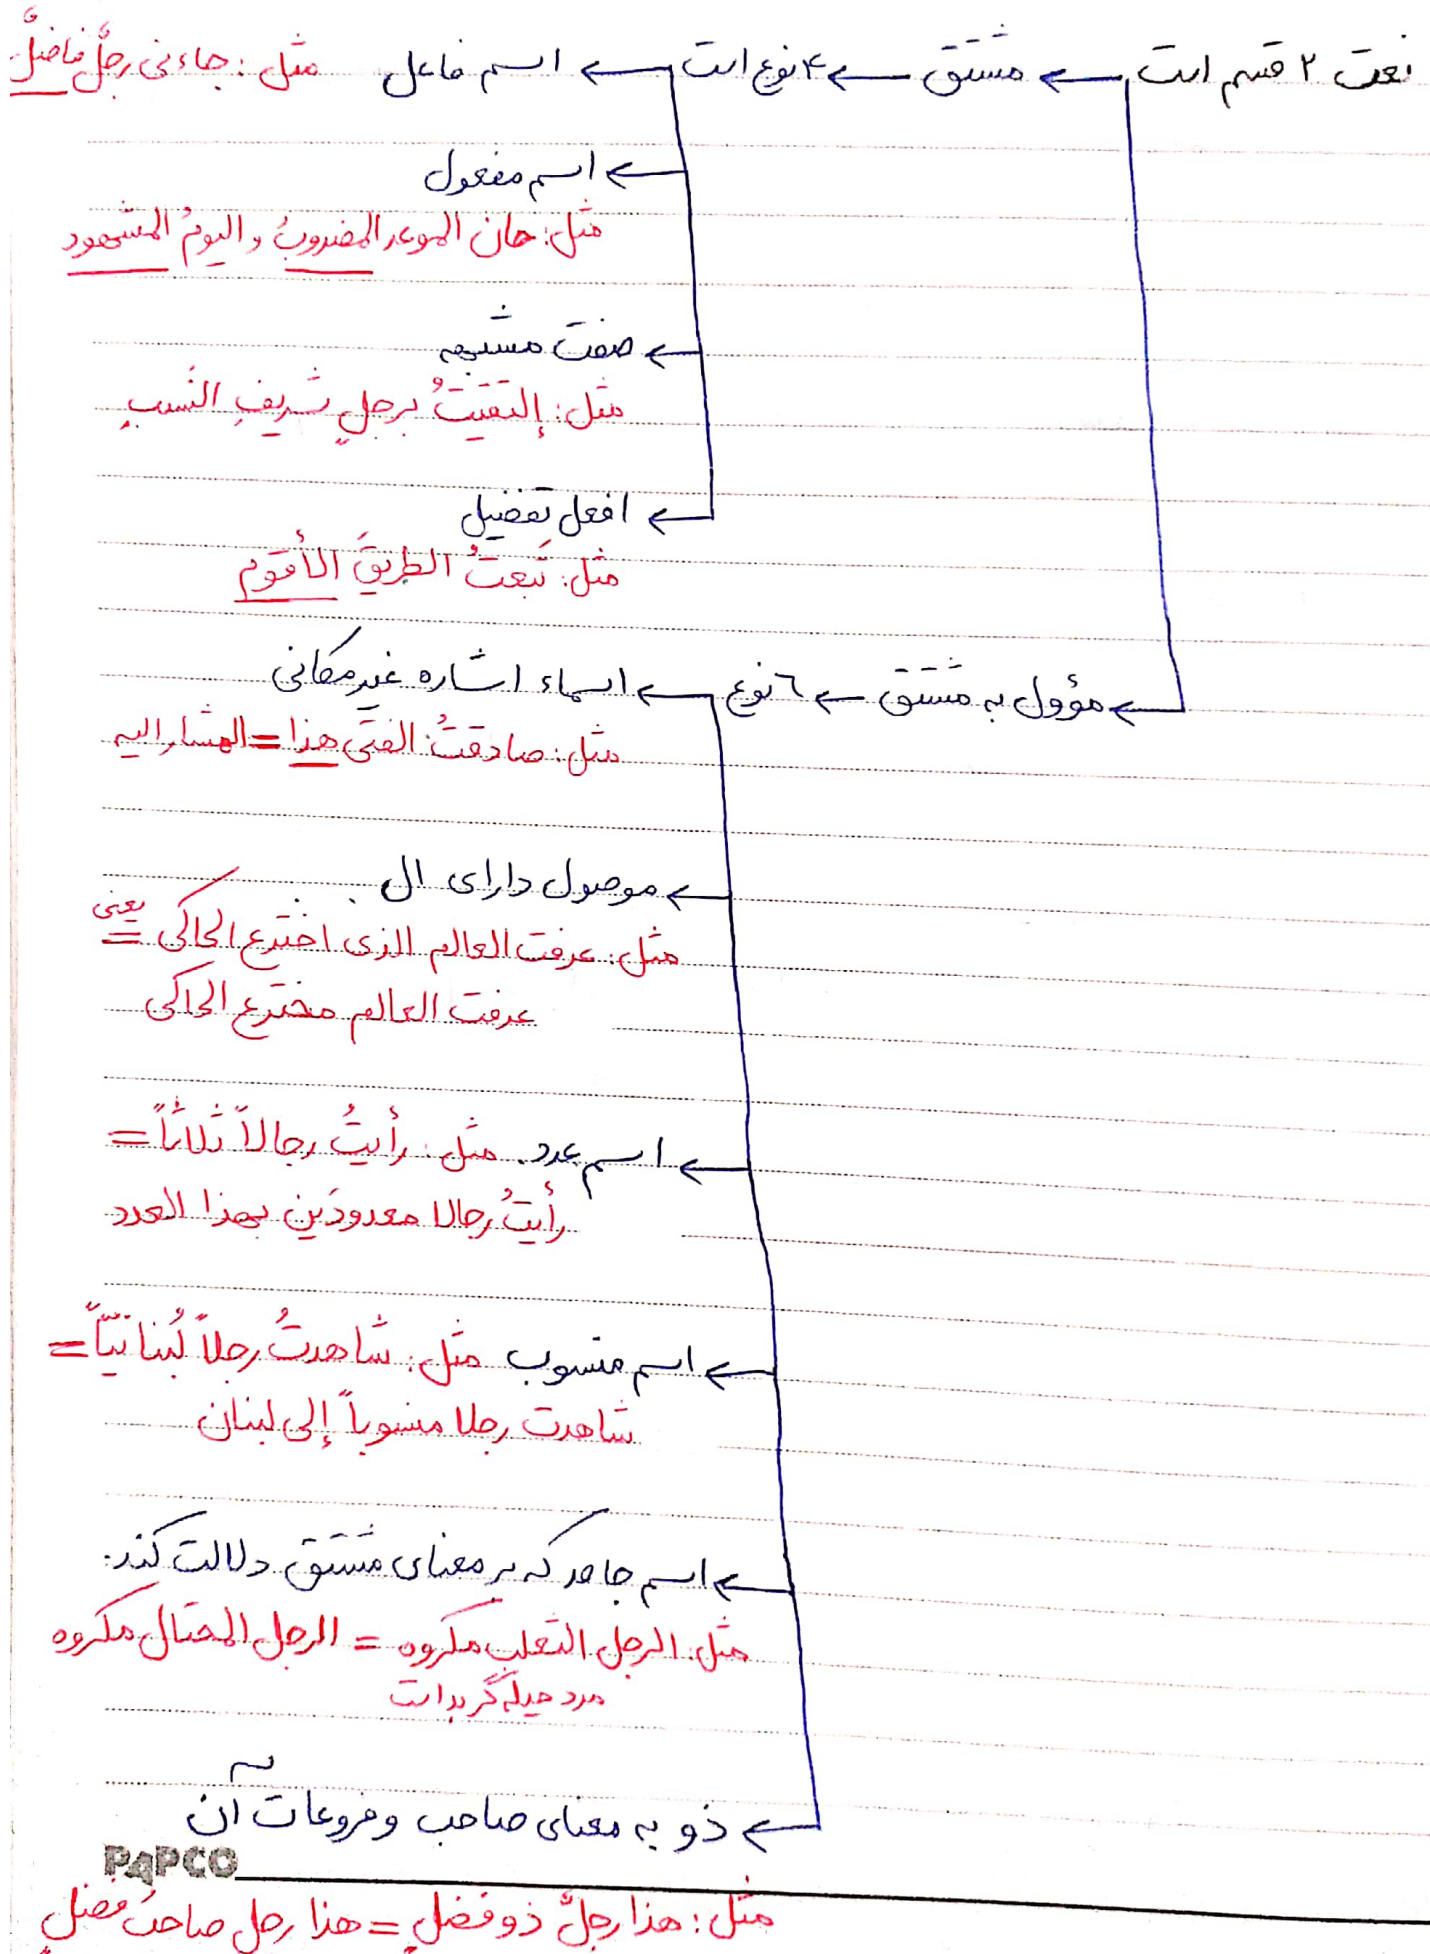 نعت ۲ قسم است ← مشتق ← ۴ نوع است ← اسم فاعل مثل: جاءنی رجلٌ فاضلٌ
← اسم مفعول
مثل: حان الموعد المضروبُ و الیومُ المشهود
← صفت مشبهه
مثل: إلتقیتُ برجلٍ شریفِ النَسبِ
← افعل تفضیل
مثل: تَبعتُ الطریقَ الأقوم
← مؤول به مشتق ← ٦ نوع ← اسماء اشاره غیرمکانی
مثل: صادقتُ الفتی هذا = المشار الیه
← موصول دارای ال
مثل: عرفت العالم الذی اخترع الحاکی = یعنی
عرفت العالم مخترع الحاکی
← اسم عدد. مثل: رأیتُ رجالاً ثلاثاً =
رأیتُ رجالا معدودَین بهذا العدد
← اسم منسوب مثل: شاهدتُ رجلاً لُبنانیّاً =
شاهدت رجلا منسوباً إلی لبنان
← اسم جامد که بر معنای مشتق دلالت کند.
مثل: الرجل الثعلب مکروه = الرجل المحتال مکروه
مرد حیله‌گر بد است
← ذو به معنای صاحب و فروعات آن
PAPCO
مثل: هذا رجلٌ ذو فضلٍ = هذا رجل صاحبُ فضلٍ